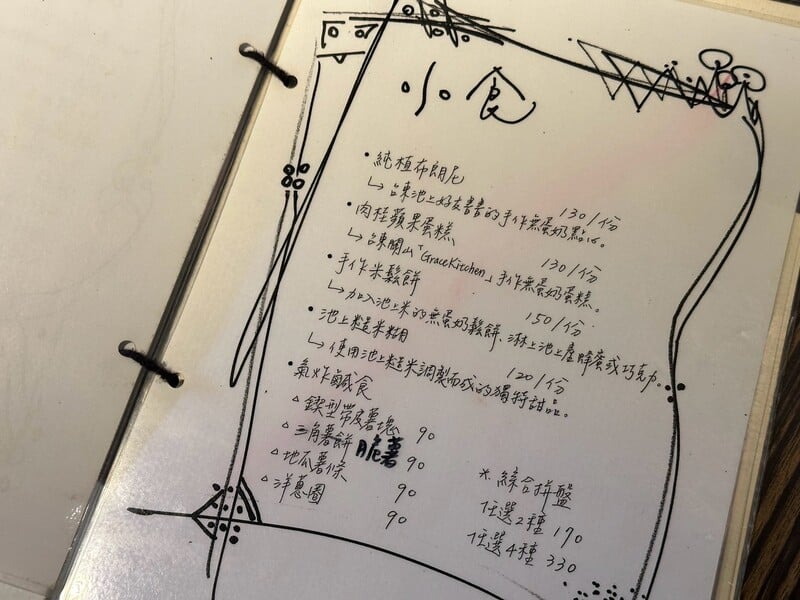 小食
•純植布朗尼 130/份
↳台東池上好友書書的手作無蛋奶點心。
•肉桂蘋果蛋糕 130/份
↳台東關山「GraceKitchen」手作無蛋奶蛋糕。
•手作米鬆餅 150/份
↳加入池上米的無蛋奶鬆餅、淋上池上產蜂蜜或巧克力。
•池上糙米糊 120/份
↳使用池上糙米調製而成的獨特甜品。
•氣炸鹹食
△鍥型帶皮薯塊 90
△三角薯餅 脆薯 90
△地瓜薯條 90
△洋蔥圈 90
*綜合拼盤
任選2種 170
任選4種 330